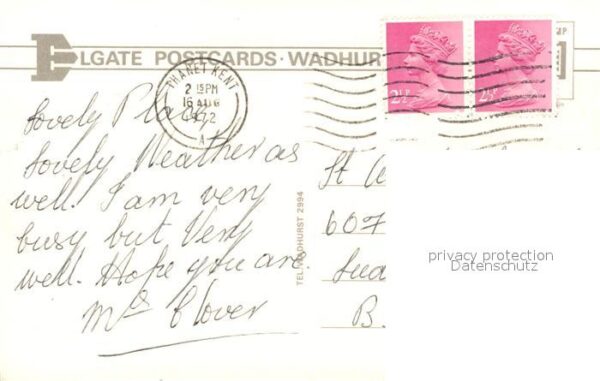 ELGATE POSTCARDS · WADHUR
THANET KENT
2 15PM
16 AUG
1972
A
2½P
2½P
Lovely Place
Lovely Weather as
well. I am very
busy but Very
well. Hope you are.
Mrs Clover
TEL. WADHURST 2994
St
607
B.
privacy protection
Datenschutz